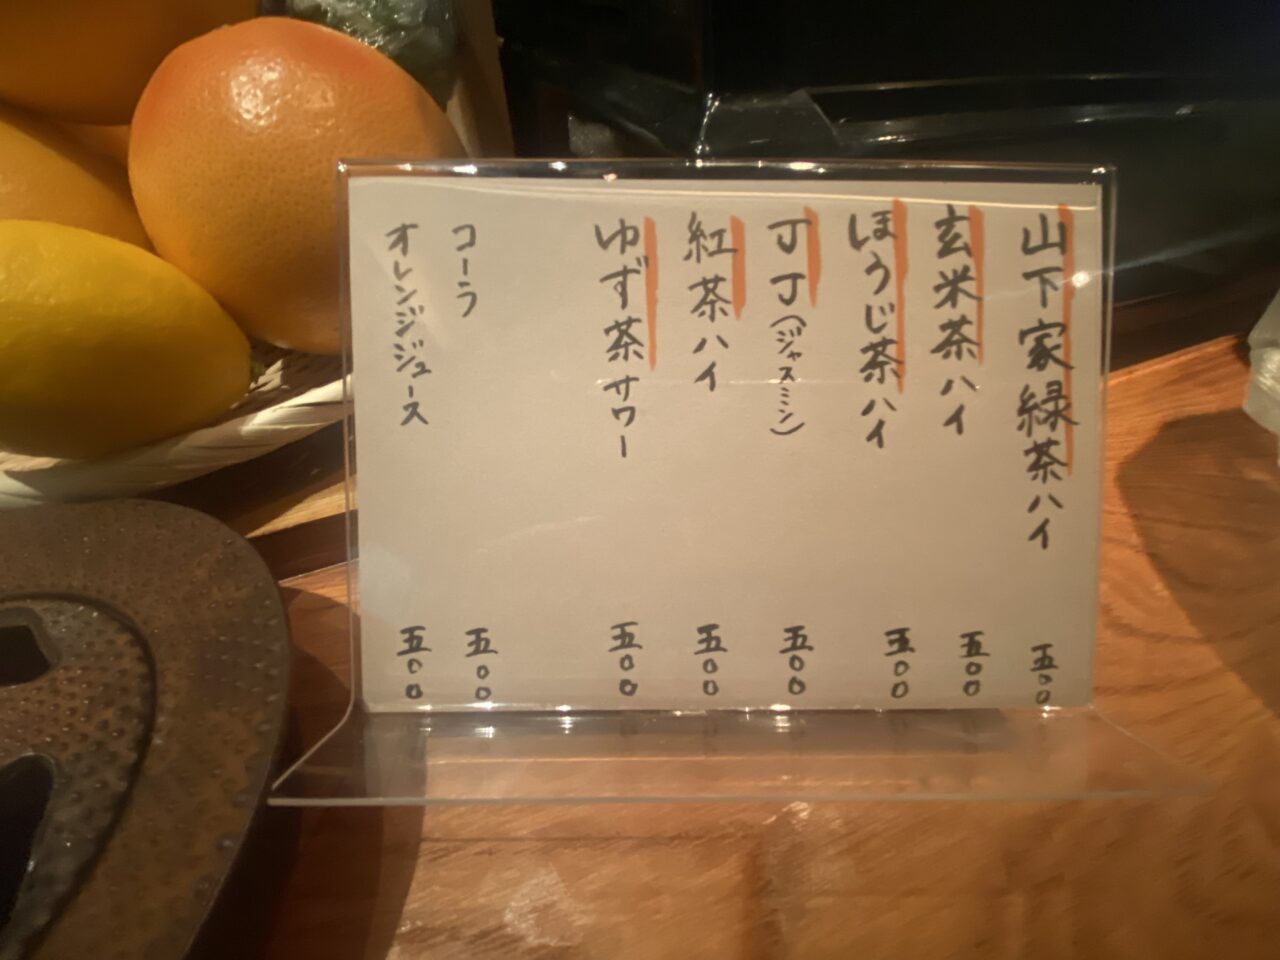 山下家緑茶ハイ 五〇〇
玄米茶ハイ 五〇〇
ほうじ茶ハイ 五〇〇
JJ(ジャスミン) 五〇〇
紅茶ハイ 五〇〇
ゆず茶サワー 五〇〇
コーラ 五〇〇
オレンジジュース 五〇〇